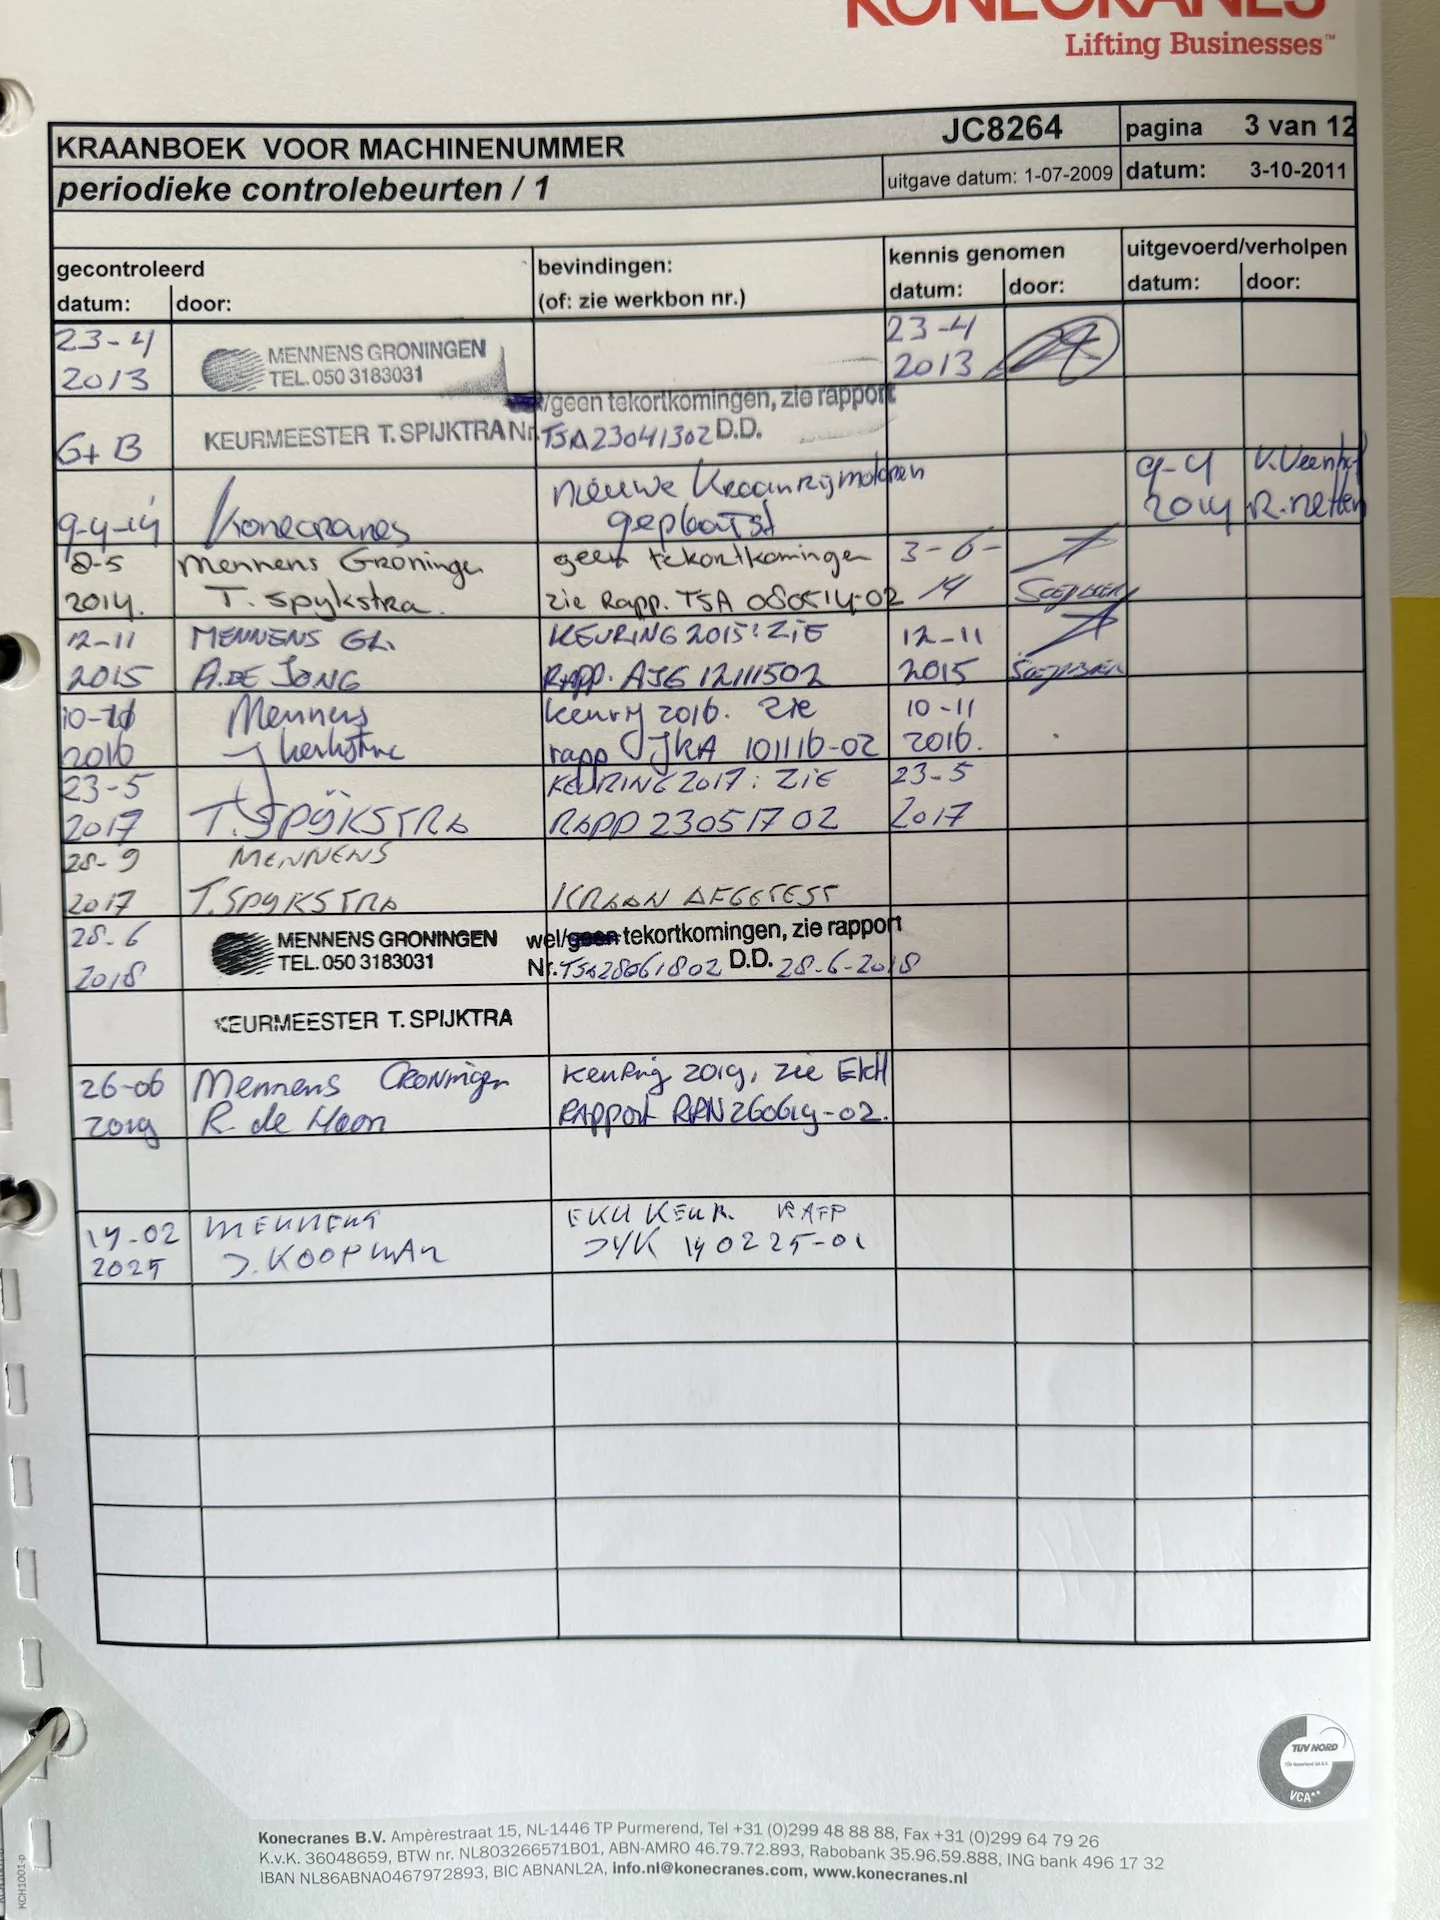 KONECRANES
Lifting Businesses™
KRAANBOEK VOOR MACHINENUMMER JC8264 pagina 3 van 12
periodieke controlebeurten / 1 uitgave datum: 1-07-2009 datum: 3-10-2011
gecontroleerd bevindingen: kennis genomen uitgevoerd/verholpen
datum: door: (of: zie werkbon nr.) datum: door: datum: door:
23-4 MENNENS GRONINGEN 23-4
2013 TEL. 050 3183031 2013
/geen tekortkomingen, zie rapport
G+B KEURMEESTER T. SPIJKTRA Nr. TSA23041302 D.D.
nieuwe Kraanrijmotoren 9-4 V.Veenhof
9-4-14 Konecranes geplaatst 2014 R.netten
8-5 Mennens Groningen geen tekortkomingen 3-6-
2014. T. Spykstra. zie Rapp. TSA 080514-02 14
12-11 MENNENS GR. KEURING 2015: ZIE 12-11
2015 A.DE JONG RAPP. AJG 12111502 2015
10-11 Mennens Keuring 2016. Zie 10-11
2016 rapp JKA 101116-02 2016.
23-5 KEURING 2017: ZIE 23-5
2017 T. SPIJKSTRA RAPP 23051702 2017
28-9 MENNENS
2017 T. SPYKSTRA KRAAN AFGETEST
28.6 MENNENS GRONINGEN wel/geen tekortkomingen, zie rapport
2018 TEL. 050 3183031 Nr. TSA28061802 D.D. 28-6-2018
KEURMEESTER T. SPIJKTRA
26-06 Mennens Groningen Keuring 2019, zie EKH
2019 R. de Haan Rapport RRN260619-02.
14-02 MENNENS EKH KEUR. RAPP
2025 J. KOOPMAN JYK 140225-01
TUV NORD
VCA**
Konecranes B.V. Ampèrestraat 15, NL-1446 TP Purmerend, Tel +31 (0)299 48 88 88, Fax +31 (0)299 64 79 26
K.v.K. 36048659, BTW nr. NL803266571B01, ABN-AMRO 46.79.72.893, Rabobank 35.96.59.888, ING bank 496 17 32
IBAN NL86ABNA0467972893, BIC ABNANL2A, info.nl@konecranes.com, www.konecranes.nl
KCH1001-p